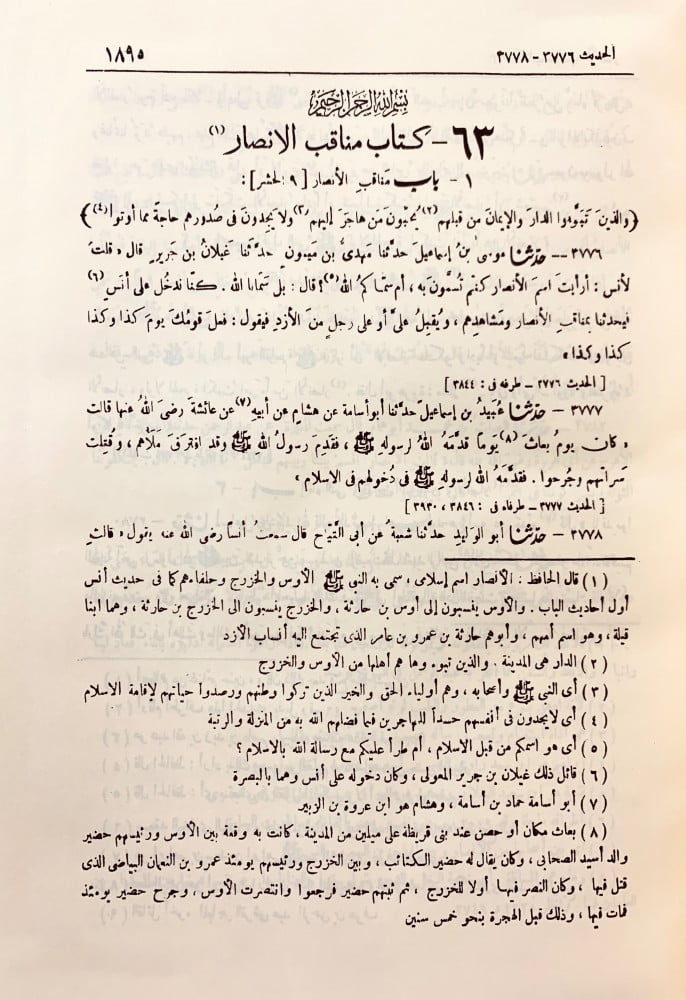 الحديث ٣٧٧٦ - ٣٧٧٨
١٨٩٥
بسم الله الرحمن الرحيم
٦٣ - كتاب مناقب الانصار (١)
١ - باب مَناقبِ الأنصار [ ٩ الحشر ] :
﴿ والذينَ تَبَوَّءوا الدارَ والإيمانَ من قبلِهم (٢) يُحبّونَ مَن هاجَرَ إليهم (٣) ولا يَجِدونَ فى صُدورهم حاجةً مما أوتوا (٤) ﴾
٣٧٧٦ -- حدّثنا موسىٰ بنُ إسماعيلَ حدَّثنا مَهدىُّ بن مَيمونٍ حدَّثَنا غَيلانُ بن جَريرٍ قال « قلتُ
لأنس : أرأيتَ اسمَ الأنصار كنتم تُسمَّونَ به ، أم سمّاكمُ الله (٥) ؟ قال : بل سَمّانا الله . كنّا ندخُل على أنَسٍ (٦)
فيحدثنا بمناقبِ الأنصار ومَشاهدِهم ، ويُقبِلُ علىَّ أو على رجلٍ منَ الأزدِ فيقول : فعلَ قومُكَ يومَ كذا وكذا
كذا وكذا »
[ الحديث ٣٧٧٦ - طرفه فى : ٣٨٤٤ ]
٣٧٧٧ - حدّثنا عُبَيدُ بن إسماعيلَ حدَّثنا أبو أسامة عن هشامٍ عن أبيهِ (٧) عن عائشةَ رضىَ اللهُ عنها قالت
« كان يومُ بعاثَ (٨) يَوماً قدَّمَهُ اللهُ لرسولهِ ﷺ ، فقَدِمَ رسولُ اللهِ ﷺ وقد افترقَ مَلَأُهم ، وقُتِلت
سَراتهم وجُرحوا . فقدَّمَهُ اللهُ لرسولهِ ﷺ فى دُخولهم فى الاسلام »
[ الحديث ٣٧٧٧ - طرفاه فى : ٣٨٤٦ ، ٣٩٣٠ ]
٣٧٧٨ - حدّثنا أبو الوَليدِ حدَّثنا شعبةُ عن أبى التَّيّاحِ قال سمعتُ أنساً رضى الله عنه يقول « قالت
( ١ ) قال الحافظ : الأنصار اسم إسلامى ، سمى به النبى ﷺ الأوس والخزرج وحلفاءهم كما فى حديث أنس
أول أحاديث الباب . والأوس ينسبون إلى أوس بن حارثة ، والخزرج ينسبون الى الخزرج بن حارثة ، وهما ابنا
قيلة ، وهو اسم أمهم ، وأبوهم حارثة بن عمرو بن عامر الذى تجتمع اليه أنساب الأزد
( ٢ ) الدار هى المدينة . والذين تبوء وها هم أهلها من الأوس والخزرج
( ٣ ) أى النبى ﷺ وأصحابه ، وهم أولياء الحق والخير الذين تركوا وطنهم ورصدوا حياتهم لإقامة الاسلام
( ٤ ) أى لايجدون فى أنفسهم حسداً للمهاجرين فيما فضلهم الله به من المنزلة والرتبة
( ٥ ) أى هو اسمكم من قبل الاسلام ، أم طرأ عليكم مع رسالة الله بالاسلام ؟
( ٦ ) قائل ذلك غيلان بن جرير المعولى ، وكان دخوله على أنس وهما بالبصرة
( ٧ ) أبو أسامة حماد بن أسامة ، وهشام هو ابن عروة بن الزبير
( ٨ ) بعاث مكان أو حصن عند بنى قريظة على ميلين من المدينة ، كانت به وقعة بين الأوس ورئيسهم حضير
والد أسيد الصحابى ، وكان يقال له حضير الكتائب ، وبين الخزرج ورئيسهم يومئذ عمرو بن النعمان البياضى الذى
قتل فيها ، وكان النصر فيها أولا للخزرج ، ثم ثبتهم حضير فرجعوا وانتصرت الأوس ، وجرح حضير يومئذ
فمات فيها ، وذلك قبل الهجرة بنحو خمس سنين